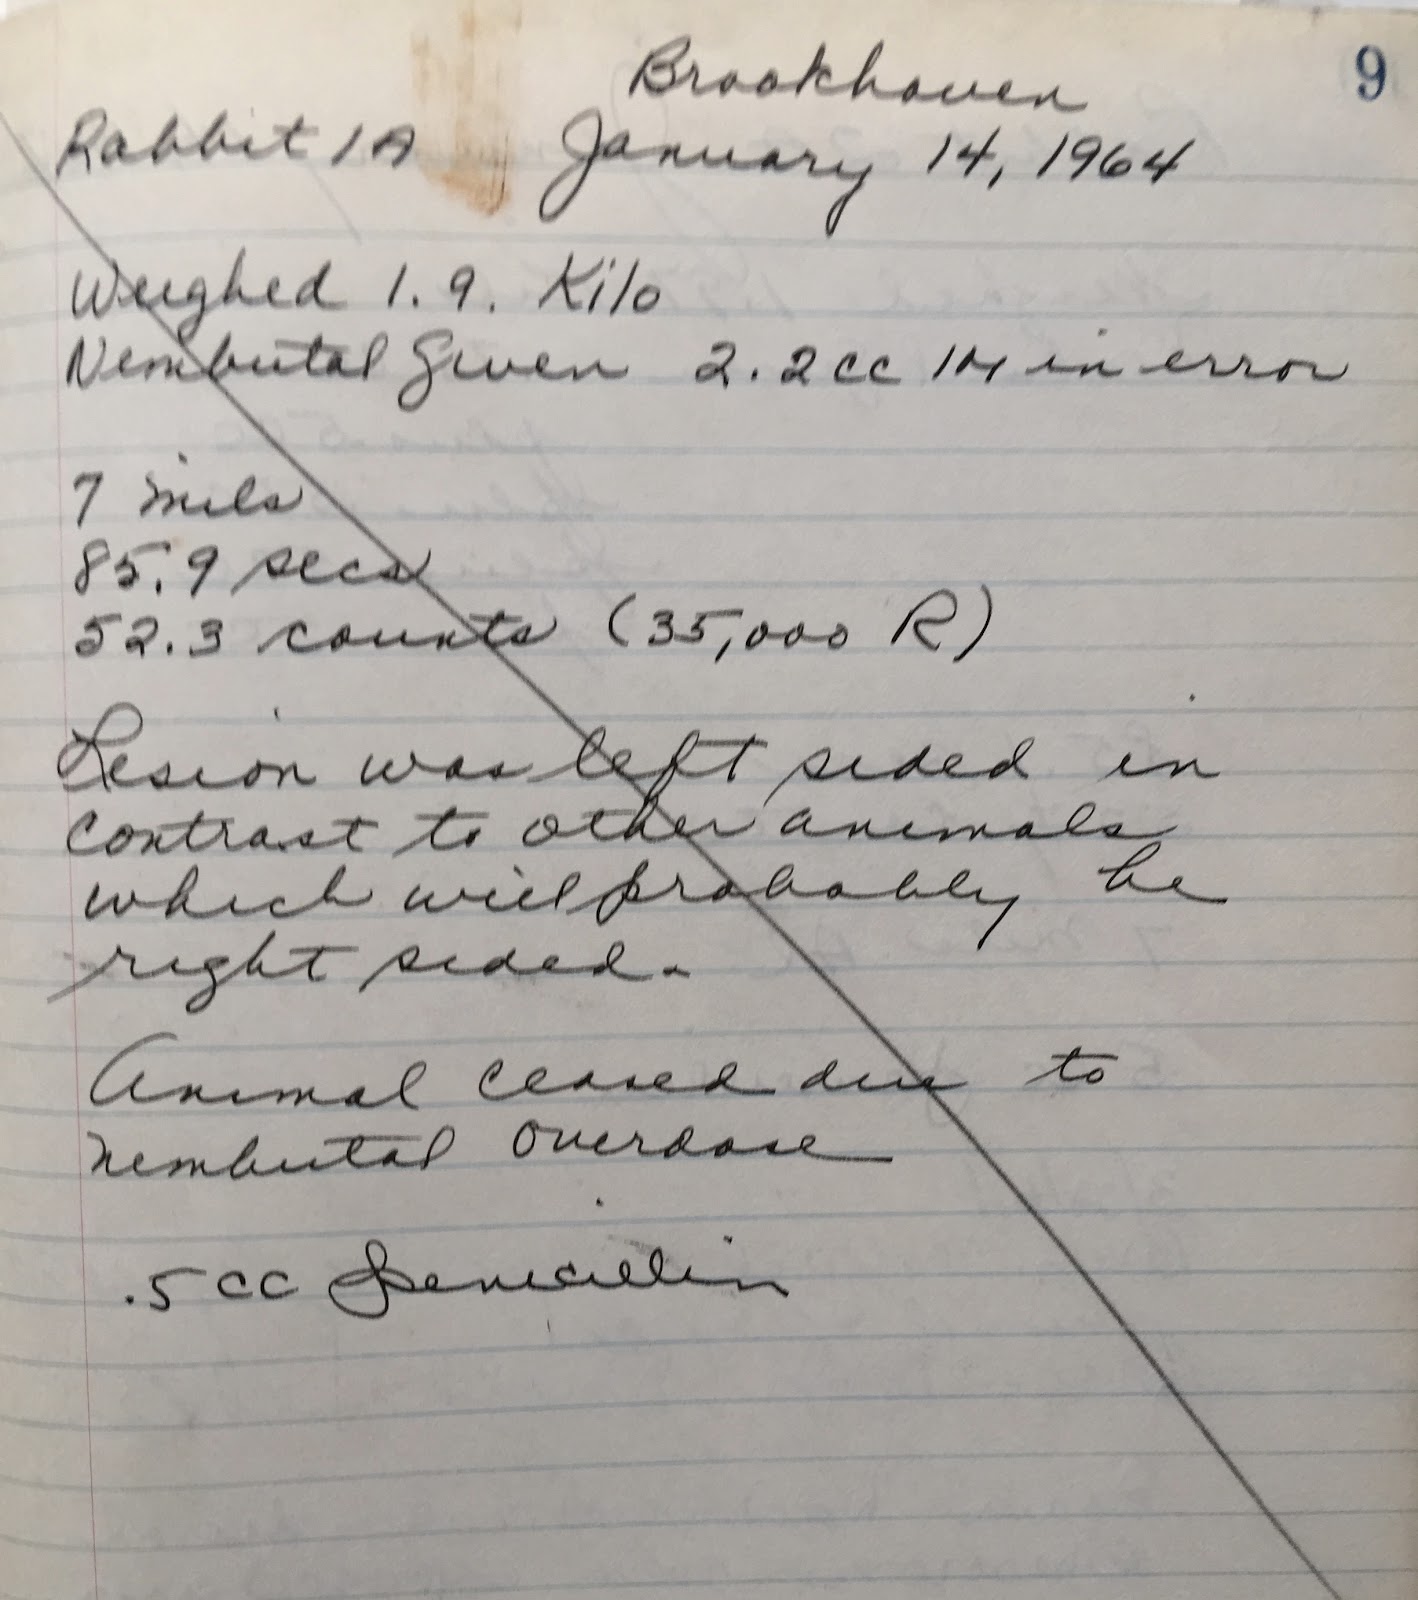 Brookhaven
9
Rabbit 1A January 14, 1964
Weighed 1.9. Kilo
Nembutal Given 2.2cc IM in error
7 mils
85.9 secs
52.3 counts (35,000 R)
Lesion was left sided in
contrast to other animals
which will probably be
right sided.
Animal ceased due to
nembutal overdose
.5 cc Penicillin